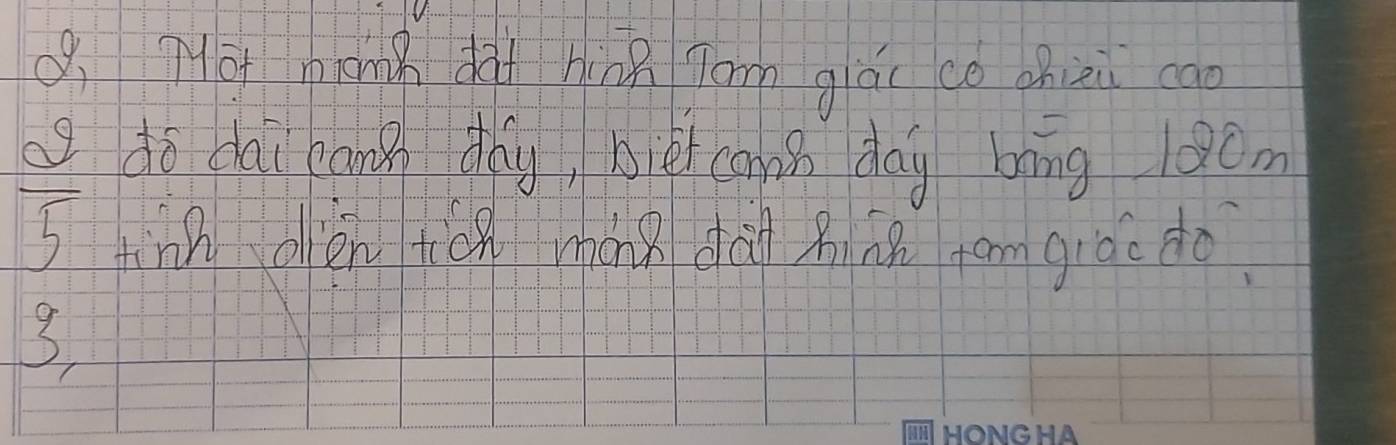 2, Một mảnh đất hình Tam giác có chiều cao
2/5 độ dài cạnh đáy, biết cạnh đáy bằng 120m
tính diện tích mảnh đất hình tam giác đó.
3,
HONG HA